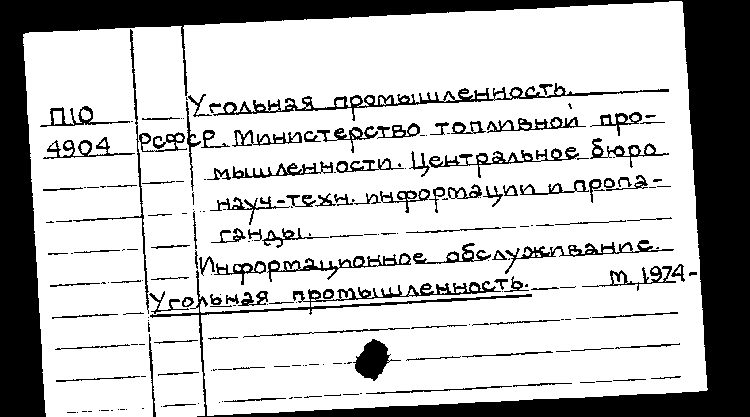 П10 Угольная промышленность.
4904 РСФСР. Министерство топливной про-
мышленности. Центральное бюро
науч-техн. информации и пропа-
ганды.
Информационное обслуживание.
Угольная промышленность. М., 1974-